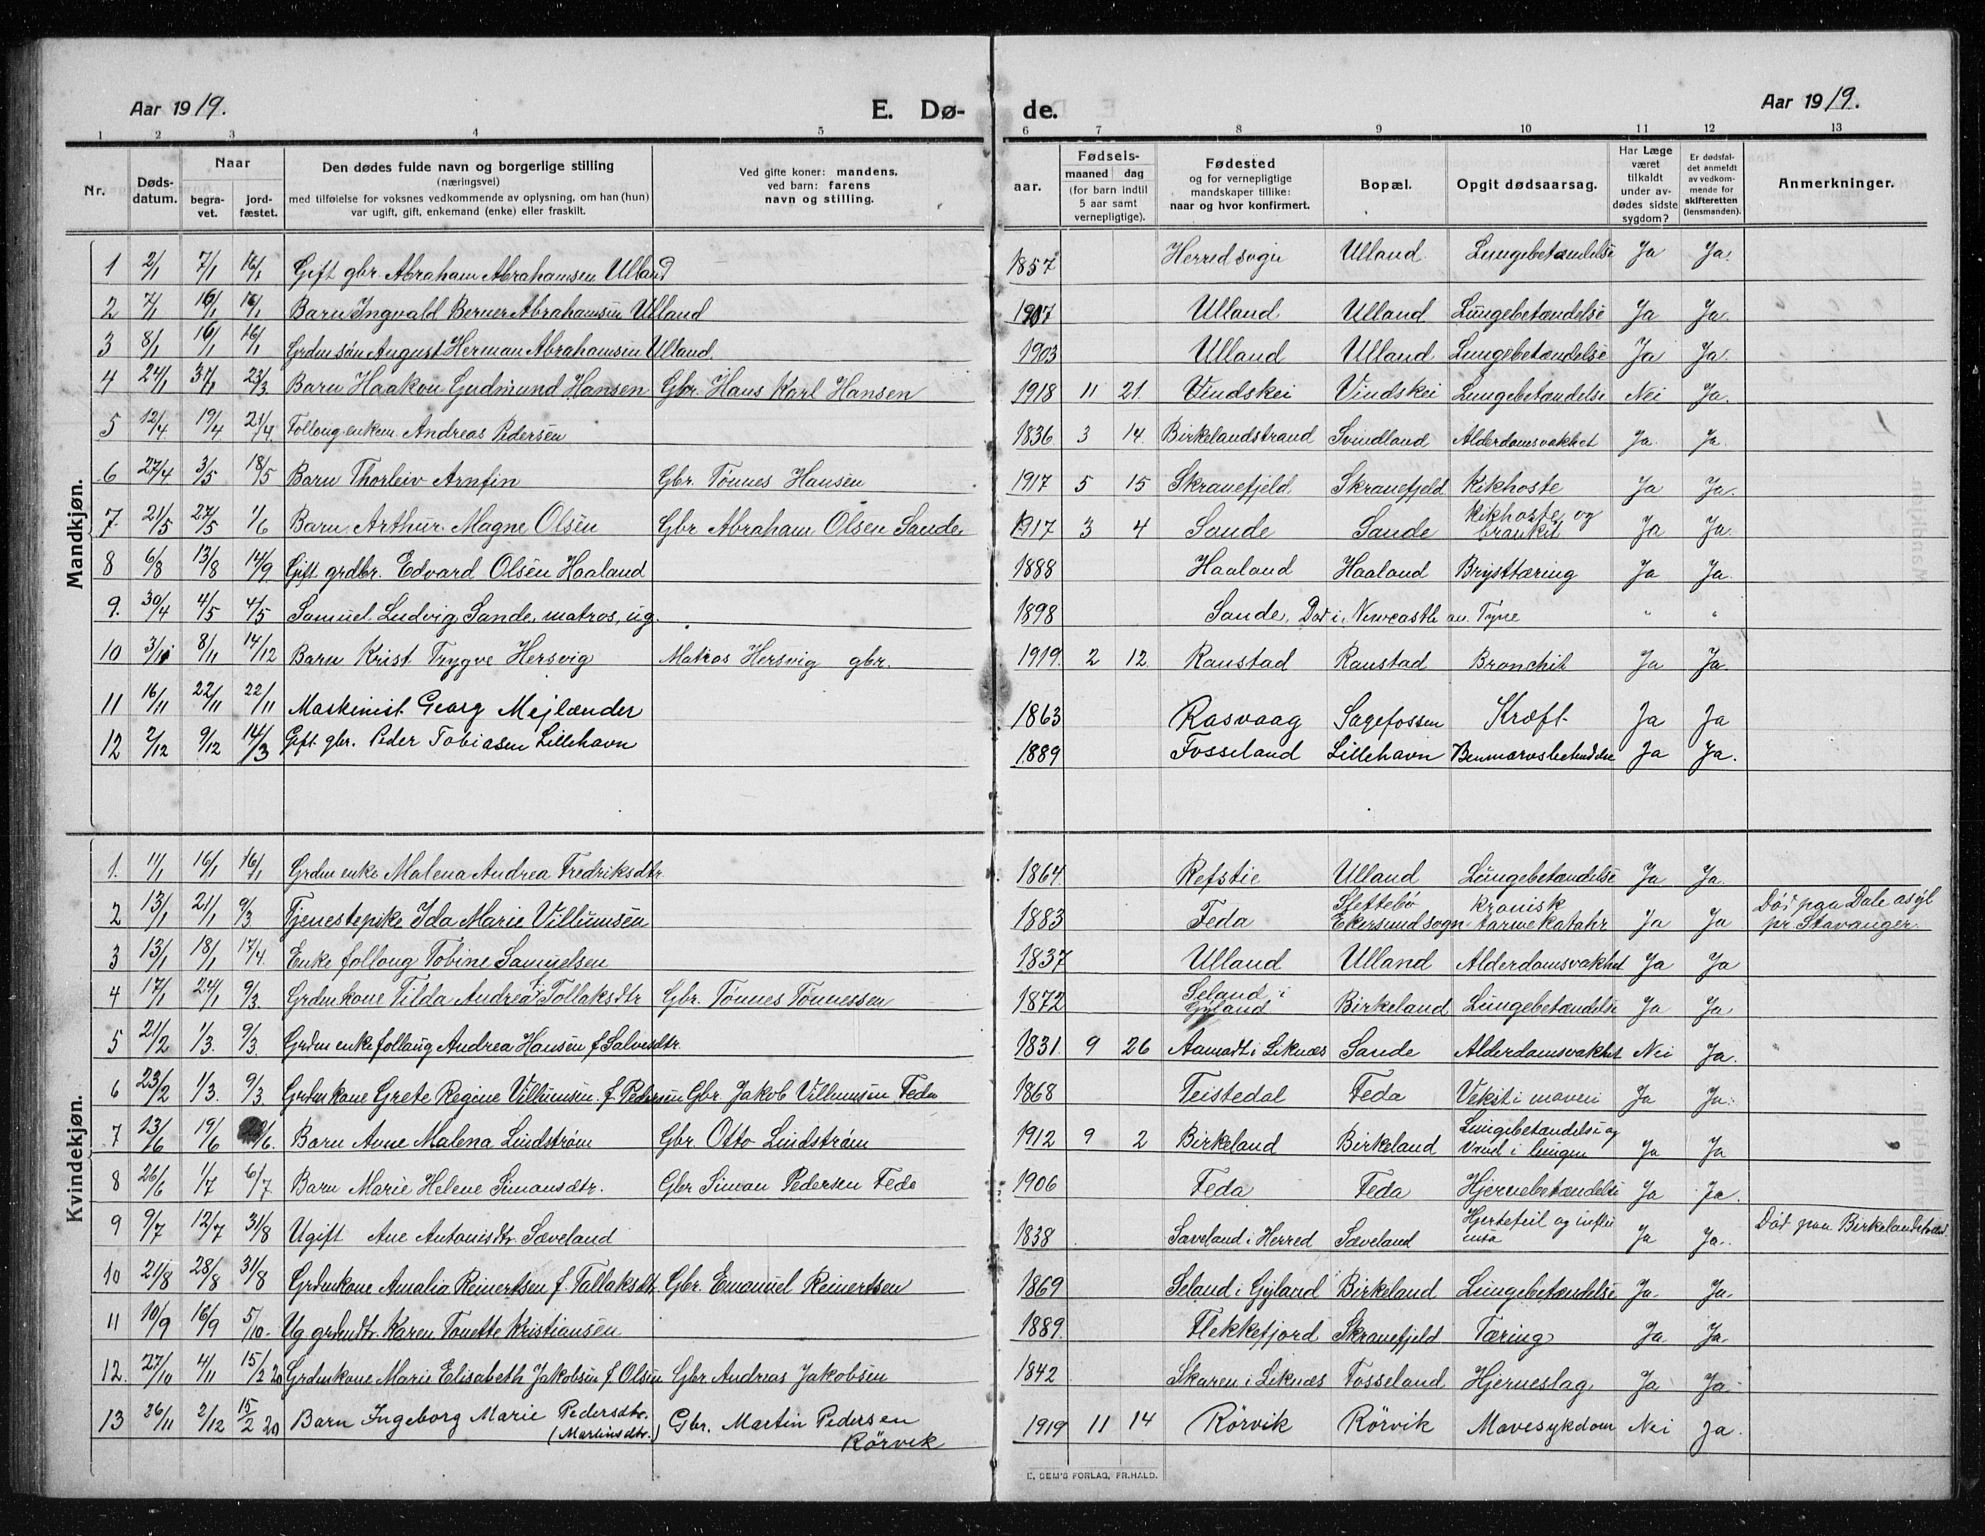 Aar 1919. E. Dø- de. Aar 1919.
1 2 3 4 5 6 7 8 9 10 11 12 13
Nr. Døds-datum. Naar begra-vet. jord-fæstet. Den dødes fulde navn og borgerlige stilling (næringsvei) med tilføielse for voksnes vedkommende av oplysning, om han (hun) var ugift, gift, enkemand (enke) eller fraskilt. Ved gifte koner: mandens, ved barn: farens navn og stilling. aar. Fødsels- maaned dag (for barn indtil 5 aar samt vernepligtige). Fødested og for vernepligtige mandskaper tillike: naar og hvor konfirmert. Bopæl. Opgit dødsaarsag. Har Læge været tilkaldt under av-dødes sidste sygdom? Er dødsfal-det anmeldt av vedkom-mende for skifteretten (lensmanden). Anmerkninger.
Mandkjøn.
1 2/1 7/1 16/1 Gift gbr. Abraham Abrahamsen Ulland 1857 Herred sogn Ulland Lungebetændelse Ja Ja.
2 7/1 16/1 16/1 Barn Ingvald Berner Abrahamsen Ulland 1907 Ulland Ulland Lungebetændelse Ja Ja.
3 8/1 16/1 16/1 Grdm søn August Herman Abrahamsen Ulland. 1903 Ulland Ulland Lungebetændelse Ja Ja.
4 24/1 31/1 23/3 Barn Haakon Gudmund Hansen Gbr. Hans Karl Hansen 1918 11 21. Vindskei Vindskei Lungebetændelse Nei Ja.
5 12/4 19/4 21/4 Follong. enkem. Andreas Pedersen 1836 3 14. Birkelandstrand Svindland Alderdomsvakhet Ja. Ja.
6 27/4 3/5 18/5 Barn Thorleiv Arnfin Gbr. Tønnes Hansen 1917 5 15 Skranefjeld. Skranefjeld Kikhoste Ja Ja.
7. 21/5 27/5 1/6 Barn Arthur Magne Olsen Gbr Abraham Olsen Sande. 1917 3 4 Sande Sande Kikhoste og bronkit Ja Ja.
8 6/8 13/8 14/9 Gift grdbr. Edvard Olsen Haaland 1888 Haaland Haaland Brysttæring Ja Ja.
9. 30/4 4/5 4/5 Samuel Ludvig Sande, matros, ug. 1898 Sande, Død i Newcastle on Tyne " "
10 3/11 8/11 14/12 Barn Krist Trygve Hersvig Matros Hersvig gbr. 1919. 2 12. Ranstad Ranstad Bronchit Ja Ja.
11 16/11 22/11 22/11 Maskinist Georg Mejlænder 1863 Rasvaag Sagefossen Kræft Ja Ja
12 2/12 9/12 14/3 Gift gbr. Peder Tobiasen Lillehavn 1889 Fosseland Lillehavn Benmarvsbetendelse Ja Ja.
Kvindekjøn.
1. 11/1 16/1 16/1 Grdm enke Malena Andrea Fredriksdtr. 1864. Refstie Ulland Lungebetændelse Ja Ja.
2 13/1 21/1 9/3 Tjenestepike Ida Marie Villumsen 1883 Feda Slettebø Ekersund sogn Kronisk tarmekatahr Ja Ja Død paa Dale asyl pr Stavanger.
3 13/1 18/1 17/4. Enke follong Tobine Samuelsen 1837 Ulland Ulland Alderdomsvakhet Ja Ja
4 17/1 24/1 9/3. Grdm kone Tilda Andrea f. Tollaksdtr Gbr. Tønnes Tønnessen 1872 Seland i Gyland Birkeland Lungebetændelse Ja Ja
5 21/2 1/3. 9/3. Grdm enke follaug Andrea Hansen f Salvesdtr. 1831. 9 26 Aamodt i Liknæs Sande Alderdomsvakhet Nei Ja.
6 23/2 1/3. 9/3 Grdm kone Grete Regine Villumsen f. Pedersen Gbr. Jakob Villumsen Feda 1868 Teistedal Feda Vekst i maven Ja Ja.
7 13/6 19/6 /6. Barn Anne Malena Lindstrøm Gbr. Otto Lindstrøm 1912 9 2 Birkeland Birkeland Lungebetændelse og Vand i lungen Ja Ja
8 26/6 1/7 6/7 Barn Marie Helene Simonsdtr. Gbr Simon Pedersen Feda 1906 Feda Feda Hjernebetændelse Ja Ja.
9 9/7 12/7 31/8 Ugift Ane Antonisdtr. Sæveland 1838 Saveland i Herred Sæveland Hjertefeil og influensa Ja Ja. Død paa Birkelandstrand
10 21/8 28/8 31/8 Grdmkone Amalia Reinertsen f. Tallaksdtr. Gbr. Emanuel Reinertsen 1869 Seland i Gyland Birkeland Lungebetændelse Ja. Ja.
11 10/9 16/9 5/10. Ug grdmdtr. Karen Tonette Kristiansen 1889. Flekkefjord Skranefjeld Tæring Ja. Ja.
12. 27/10 4/11 15/2 20 Grdmkone Marie Elisabeth Jakobsen f. Olsen Gbr Andreas Jakobsen 1842 Skaren i Liknæs Fosseland Hjerneslag Ja Ja.
13 26/11 2/12 15/2 20 Barn Ingeborg Marie Pedersdtr. (Martinsdtr.) Gbr. Martin Pedersen Rörvik 1919 11 14 Rörvik Rörvik Mavesykdom Nei Ja.
E. SEM'S FORLAG, FR.HALD.